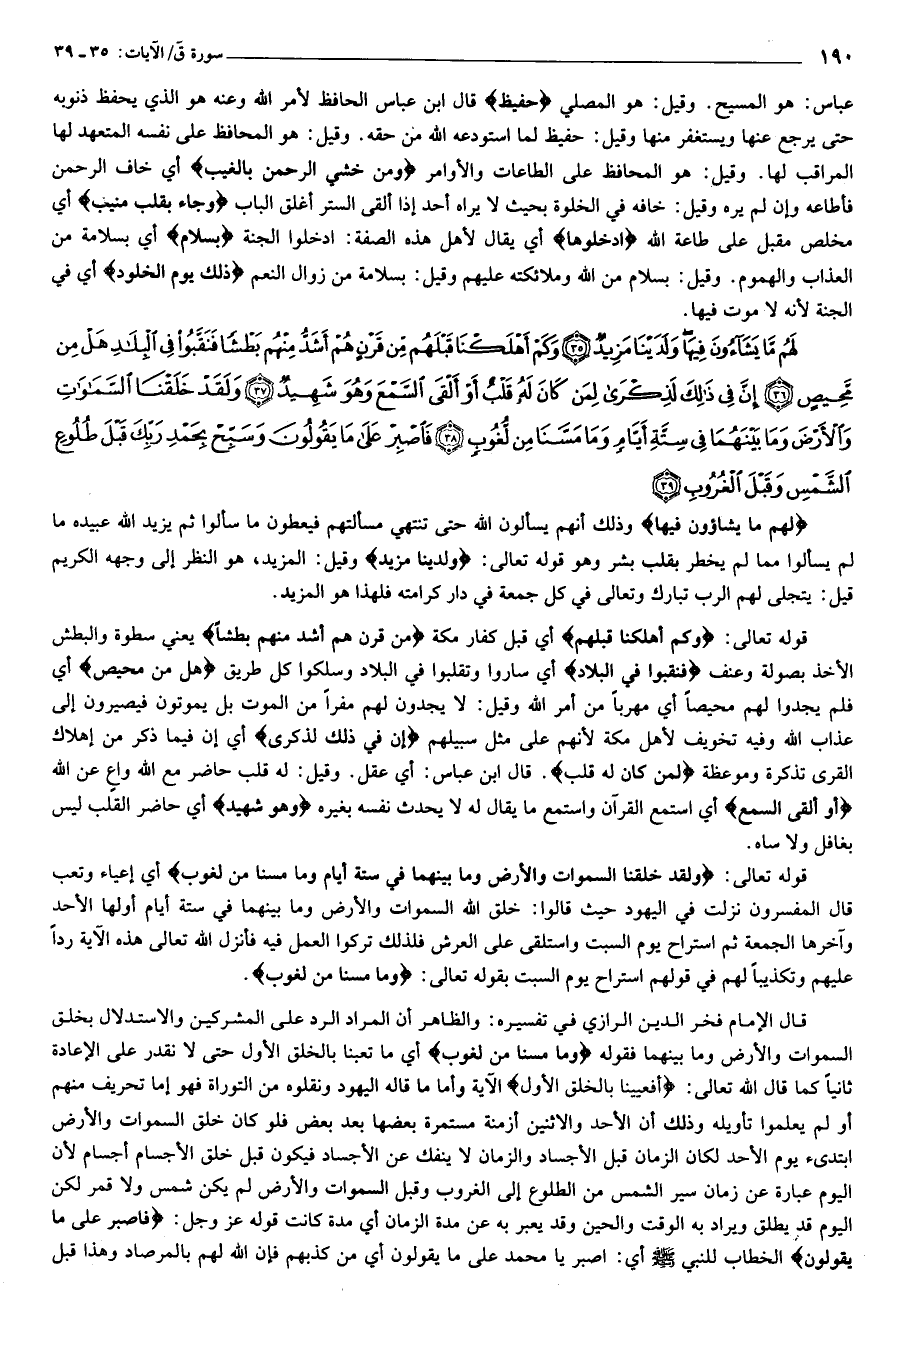 ١٩٠ سورة قَ/ الآيات: ٣٥ ـ ٣٩
عباس: هو المسيح. وقيل: هو المصلي ﴿حفيظ﴾ قال ابن عباس الحافظ لأمر الله وعنه هو الذي يحفظ ذنوبه
حتى يرجع عنها ويستغفر منها وقيل: حفيظ لما استودعه الله من حقه. وقيل: هو المحافظ على نفسه المتعهد لها
المراقب لها. وقيل: هو المحافظ على الطاعات والأوامر ﴿ومن خشي الرحمن بالغيب﴾ أي خاف الرحمن
فأطاعه وإن لم يره وقيل: خافه في الخلوة بحيث لا يراه أحد إذا ألقى الستر أغلق الباب ﴿وجاء بقلب منيب﴾ أي
مخلص مقبل على طاعة الله ﴿ادخلوها﴾ أي يقال لأهل هذه الصفة: ادخلوا الجنة ﴿بسلام﴾ أي بسلامة من
العذاب والهموم. وقيل: بسلام من الله وملائكته عليهم وقيل: بسلامة من زوال النعم ﴿ذلك يوم الخلود﴾ أي في
الجنة لأنه لا موت فيها.
لَهُم مَّا يَشَآءُونَ فِيهَا وَلَدَيْنَا مَزِيدٌ ﴿٣٥﴾ وَكَمْ أَهْلَكْنَا قَبْلَهُم مِّن قَرْنٍ هُمْ أَشَدُّ مِنْهُم بَطْشًا فَنَقَّبُوا۟ فِى ٱلْبِلَٰدِ هَلْ مِن
مَّحِيصٍ ﴿٣٦﴾ إِنَّ فِى ذَٰلِكَ لَذِكْرَىٰ لِمَن كَانَ لَهُۥ قَلْبٌ أَوْ أَلْقَى ٱلسَّمْعَ وَهُوَ شَهِيدٌ ﴿٣٧﴾ وَلَقَدْ خَلَقْنَا ٱلسَّمَٰوَٰتِ
وَٱلْأَرْضَ وَمَا بَيْنَهُمَا فِى سِتَّةِ أَيَّامٍ وَمَا مَسَّنَا مِن لُّغُوبٍ ﴿٣٨﴾ فَٱصْبِرْ عَلَىٰ مَا يَقُولُونَ وَسَبِّحْ بِحَمْدِ رَبِّكَ قَبْلَ طُلُوعِ
ٱلشَّمْسِ وَقَبْلَ ٱلْغُرُوبِ ﴿٣٩﴾
﴿لهم ما يشاؤون فيها﴾ وذلك أنهم يسألون الله حتى تنتهي مسألتهم فيعطون ما سألوا ثم يزيد الله عبيده ما
لم يسألوا مما لم يخطر بقلب بشر وهو قوله تعالى: ﴿ولدينا مزيد﴾ وقيل: المزيد، هو النظر إلى وجهه الكريم
قيل: يتجلى لهم الرب تبارك وتعالى في كل جمعة في دار كرامته فلهذا هو المزيد.
قوله تعالى: ﴿وكم أهلكنا قبلهم﴾ أي قبل كفار مكة ﴿من قرن هم أشد منهم بطشاً﴾ يعني سطوة والبطش
الأخذ بصولة وعنف ﴿فنقبوا في البلاد﴾ أي ساروا وتقلبوا في البلاد وسلكوا كل طريق ﴿هل من محيص﴾ أي
فلم يجدوا لهم محيصاً أي مهرباً من أمر الله وقيل: لا يجدون لهم مفراً من الموت بل يموتون فيصيرون إلى
عذاب الله وفيه تخويف لأهل مكة لأنهم على مثل سبيلهم ﴿إن في ذلك لذكرى﴾ أي إن فيما ذكر من إهلاك
القرى تذكرة وموعظة ﴿لمن كان له قلب﴾. قال ابن عباس: أي عقل. وقيل: له قلب حاضر مع الله واعٍ عن الله
﴿أو ألقى السمع﴾ أي استمع القرآن واستمع ما يقال له لا يحدث نفسه بغيره ﴿وهو شهيد﴾ أي حاضر القلب ليس
بغافل ولا ساه.
قوله تعالى: ﴿ولقد خلقنا السموات والأرض وما بينهما في ستة أيام وما مسنا من لغوب﴾ أي إعياء وتعب
قال المفسرون نزلت في اليهود حيث قالوا: خلق الله السموات والأرض وما بينهما في ستة أيام أولها الأحد
وآخرها الجمعة ثم استراح يوم السبت واستلقى على العرش فلذلك تركوا العمل فيه فأنزل الله تعالى هذه الآية رداً
عليهم وتكذيباً لهم في قولهم استراح يوم السبت بقوله تعالى: ﴿وما مسنا من لغوب﴾.
قال الإمام فخر الدين الرازي في تفسيره: والظاهر أن المراد الرد على المشركين والاستدلال بخلق
السموات والأرض وما بينهما فقوله ﴿وما مسنا من لغوب﴾ أي ما تعبنا بالخلق الأول حتى لا نقدر على الإعادة
ثانياً كما قال الله تعالى: ﴿أفعيينا بالخلق الأول﴾ الآية وأما ما قاله اليهود ونقلوه من التوراة فهو إما تحريف منهم
أو لم يعلموا تأويله وذلك أن الأحد والاثنين أزمنة مستمرة بعضها بعد بعض فلو كان خلق السموات والأرض
ابتدىء يوم الأحد لكان الزمان قبل الأجساد والزمان لا ينفك عن الأجساد فيكون قبل خلق الأجسام أجسام لأن
اليوم عبارة عن زمان سير الشمس من الطلوع إلى الغروب وقبل السموات والأرض لم يكن شمس ولا قمر لكن
اليوم قد يطلق ويراد به الوقت والحين وقد يعبر به عن مدة الزمان أي مدة كانت قوله عز وجل: ﴿فاصبر على ما
يقولون﴾ الخطاب للنبي ﷺ أي: اصبر يا محمد على ما يقولون أي من كذبهم فإن الله لهم بالمرصاد وهذا قبل